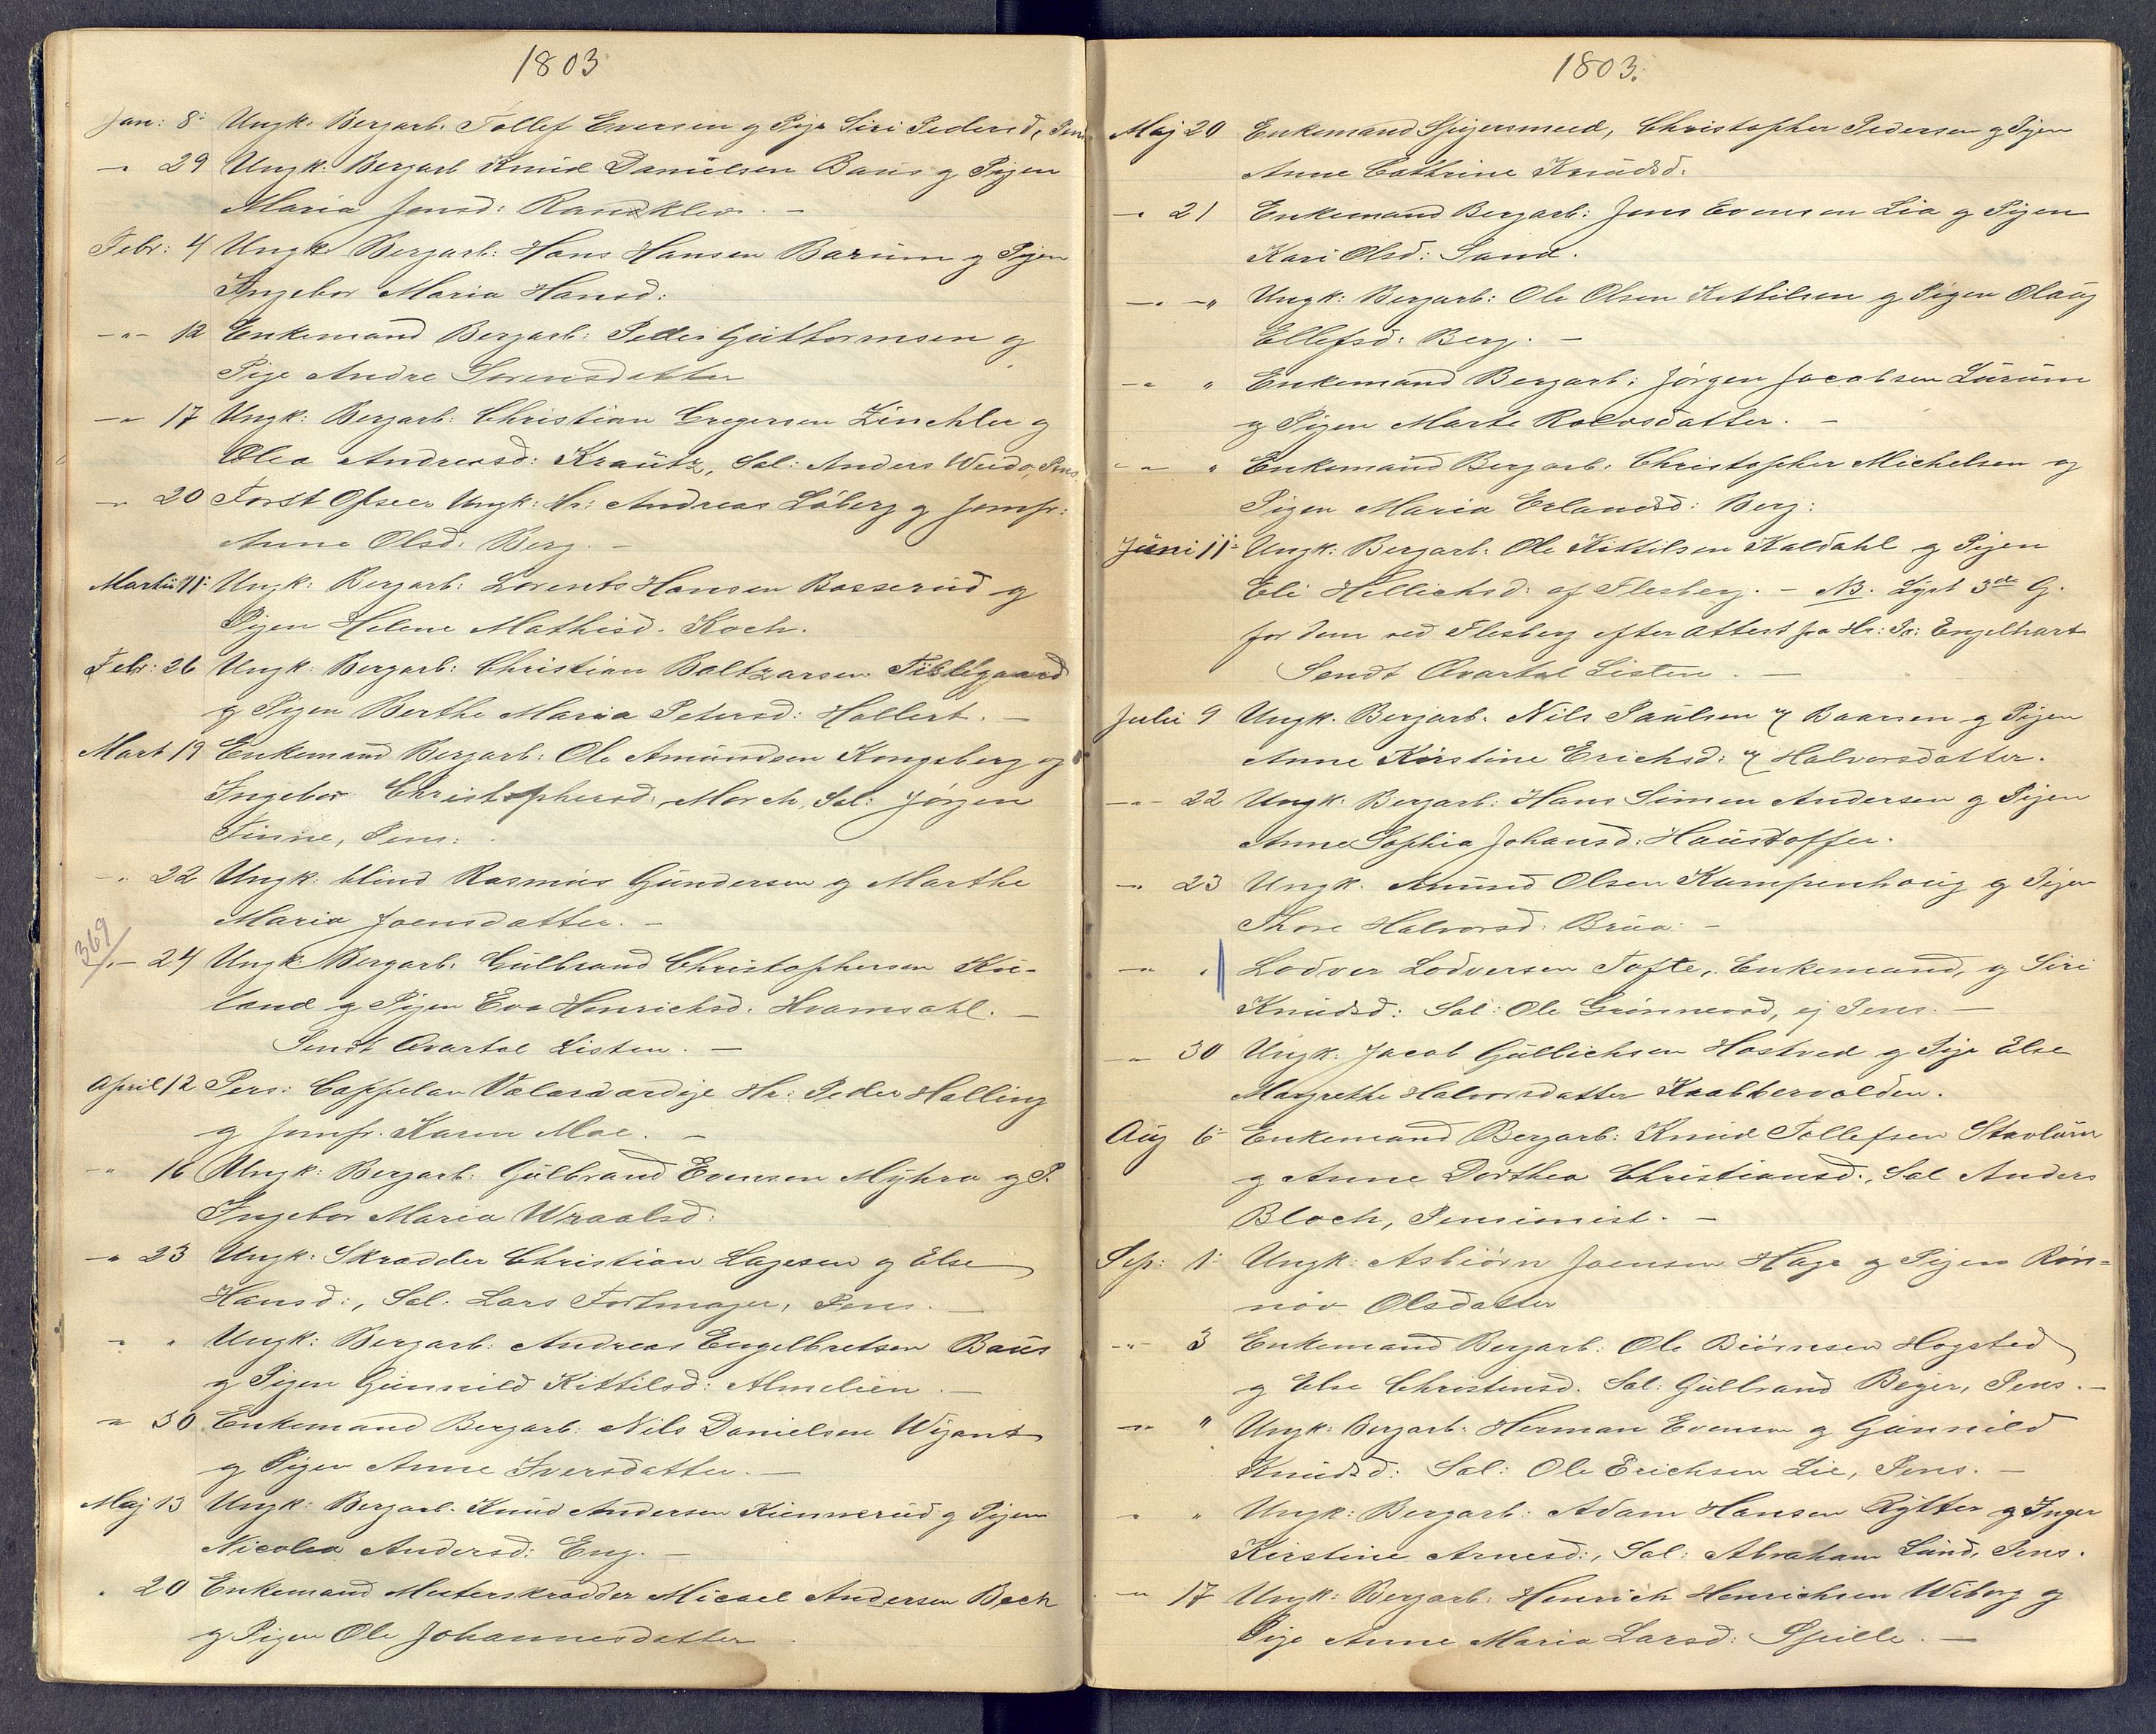 1803
Jan: 8: Ungk: Bergarb. Tollef Evensen og Pige Siri Pedersd, Pens
— 29 Ungk: Bergarb Knud Danielsen Baus og Pigen
Maria Jonsd: Randklev. —
Febr: 4 Ungk Bergarb: Hans Hansen Barum og Pigen
Ingebor Maria Hansd:
-"- 12 Enkemand Bergarb: Peder Guttormsen og
Pige Andre Sørensdatter
-" 17 Ungk: Bergarb: Christian Gregersen Zinchler og
Olea Andreasd: Krautz, Sal: Anders Weido, Pens.
— 20 Forst Opseer Ungk: Hr: Andreas Løberg og Jomfr:
Anne Olsd: Berg. —
Martii 11: Ungk: Bergarb: Lorents Hansen Basserud og
Pigen Helene Mathisd. Koch.
Febr: 26 Ungk: Bergarb: Christian Baltzarsen
og Pigen Berthe Maria Petersd: Hallert. —
Mart 19 Enkemand Bergarb: Ole Amundsen Kongsberg og
Ingebor Christophersd: Morch, Sal: Jørgen
Finne, Pens:
-. 22 Ungk: blind Rasmus Gundersen og Marthe
Maria Joensdatter. —
369
— 24 Ungk Bergarb. Gulbrand Christophersen Kii-
land og Pigen Eva Henrichsd. Hvamsahl. —
Sendt Qvartal Listen. —
April 12 Pers: Cappelan Velærværdige Hr: Peder Halling
og Jomfr. Karen Moe. —
-" 16 Ungk: Bergarb: Gulbrand Evensen Myhra og P.
Ingebor Maria Wraalsd:
-" 23 Ungk: Skrædder Christian Lagesen og Else
Hansd:, Sal: Lars Fortmajer, Pens. —
-. " Ungk: Bergarb: Andreas Engelbretsen Baus
og Pigen Gunnild Kittilsd: Almelien. —
-" 30 Enkemand Bergarb: Nils Danielsen Wigant
og Pigen Anne Iversdatter. —
Maj 13 Ungk: Bergarb. Knud Andersen Kiennerud og Pigen
Nicolea Andersd: Eng. —
. 20 Enkemand Mesterskrædder Micael Andersen Bech
og Pigen Ole Johannesdatter
1803.
Maj 20 Enkemand Spigersmed, Christopher Pedersen og Pigen
Anne Cathrine Knudsd.
— 21 Enkemand Bergarb: Jens Evensen Lia og Pigen
Kari Olsd: Sand.
— -" Ungk: Bergarb: Ole Olsen Kittilsen og Pigen Olaug
Ellefsd: Berg. —
-" " Enkemand Bergarb: Jørgen Jacobsen Lurum
og Pigen Marte Rolvsdatter. —
-" " Enkemand Bergarb: Christopher Michelsen og
Pigen Maria Erlandsd: Berg:
Juni 11: Ungk: Bergarb: Ole Kittilsen Kaldahl og Pigen
Eli Hellichsd: af Flesberg. — NB. Lyst 3de G.
for dem ved Flesberg efter Attest fra Hr: Pr: Engelhart
Sendt Qvartal Listen. —
Julii 9 Ungk. Bergarb. Nils Paulsen % Baarsen og Pigen
Anne Kirstine Erichsd: % Halvorsdatter.
-"- 22 Ungk: Bergarb: Hans Simen Andersen og Pigen
Anne Sophia Johansd: Haustoffer.
— 23 Ungk. Amund Olsen Kampenhoug og Pigen
Thore Halvorsd: Brua. —
-" " Lodver Lodversen Tofte, Enkemand, og Siri
Knudsd: Sal: Ole Grønnevod, ej Pens. —
-" 30 Ungk. Jacob Gullichsen Hostved og Pige Else
Margrethe Halvorsdatter Krabbervolden.
Aug 6: Enkemand Bergarb: Knud Tollefsen Stavlum
og Anne Dorthea Christiansd:, Sal Anders
Bloch, Pensionist. —
Sep: 1: Ungk: Asbiørn Joensen Hage og Pigen Røn=
nøv Olsdatter
-"- 3 Enkemand Bergarb. Ole Biørnsen Hogsted
og Else Christensd. Sal: Gulbrand Bejer, Pens. —
-" " Ungk: Bergarb. Herman Evensen og Gunnild
Knudsd: Sal: Ole Erichsen Lie, Pens. —
- " Ungk: Bergarb: Adam Hansen Rytter og Inger
Kirstine Arnesd:, Sal: Abraham Lund, Pens.
-" 17 Ungk: Bergarb: Henrich Henrichsen Wiborg og
Pige Anne Maria Larsd: Spille. —